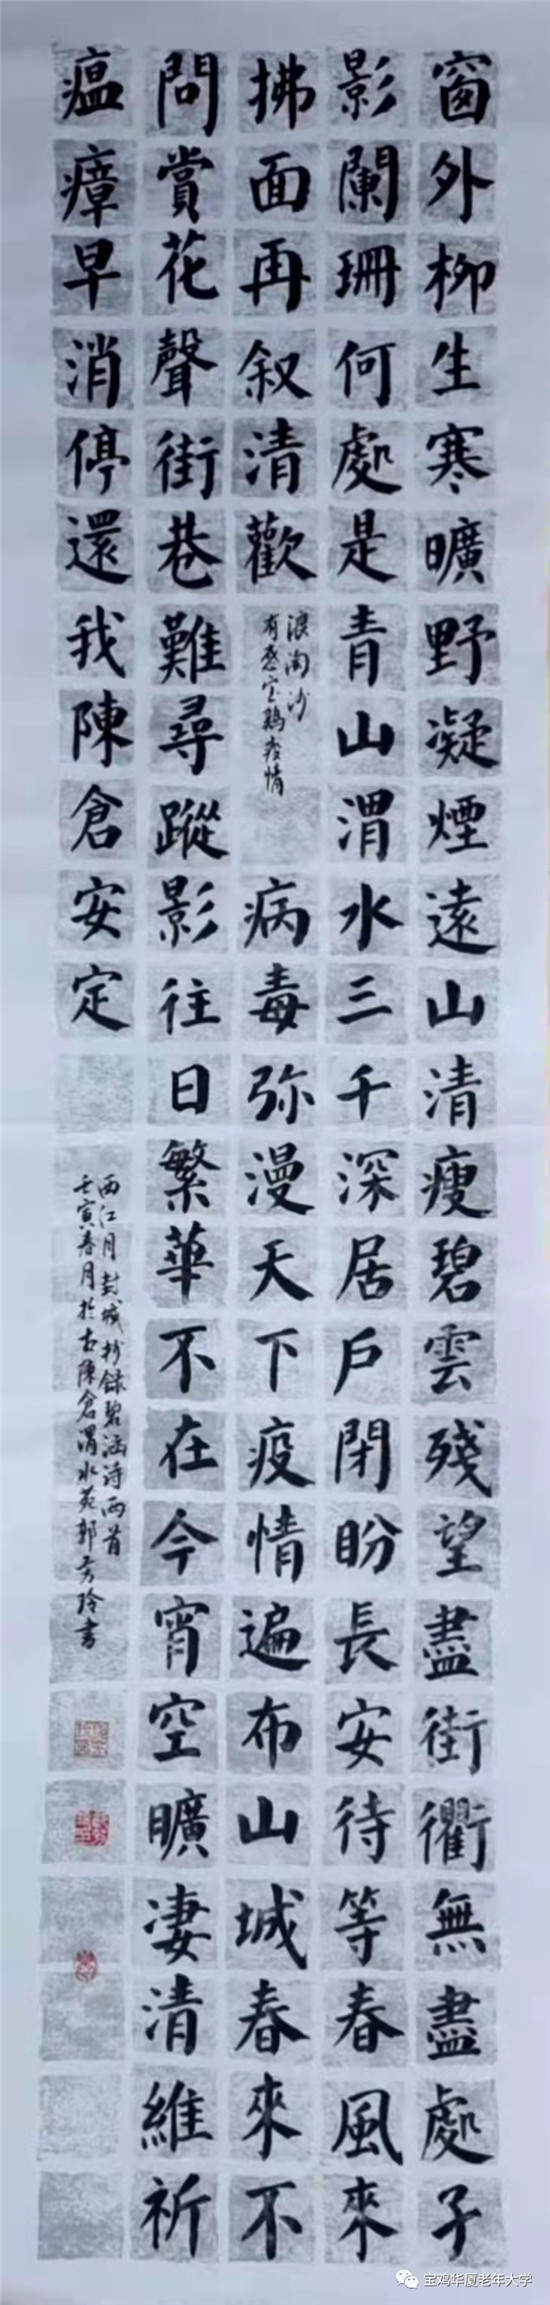 窗外柳生寒曠野凝煙遠山清瘦碧雲殘望盡街衢無盡處子
影闌珊何處是青山渭水三千深居戶閉盼長安待等春風來
拂面再叙清歡
浪淘沙
有感宝鷄疫情
病毒弥漫天下疫情遍布山城春來不
問賞花聲街巷難尋蹤影往日繁華不在今宵空曠凄清維祈
瘟瘴早消停還我陳倉安定
西江月封城抄録碧涵诗两首
壬寅春月於古陳倉渭水苑郭芳玲書
宝鸡华厦老年大学